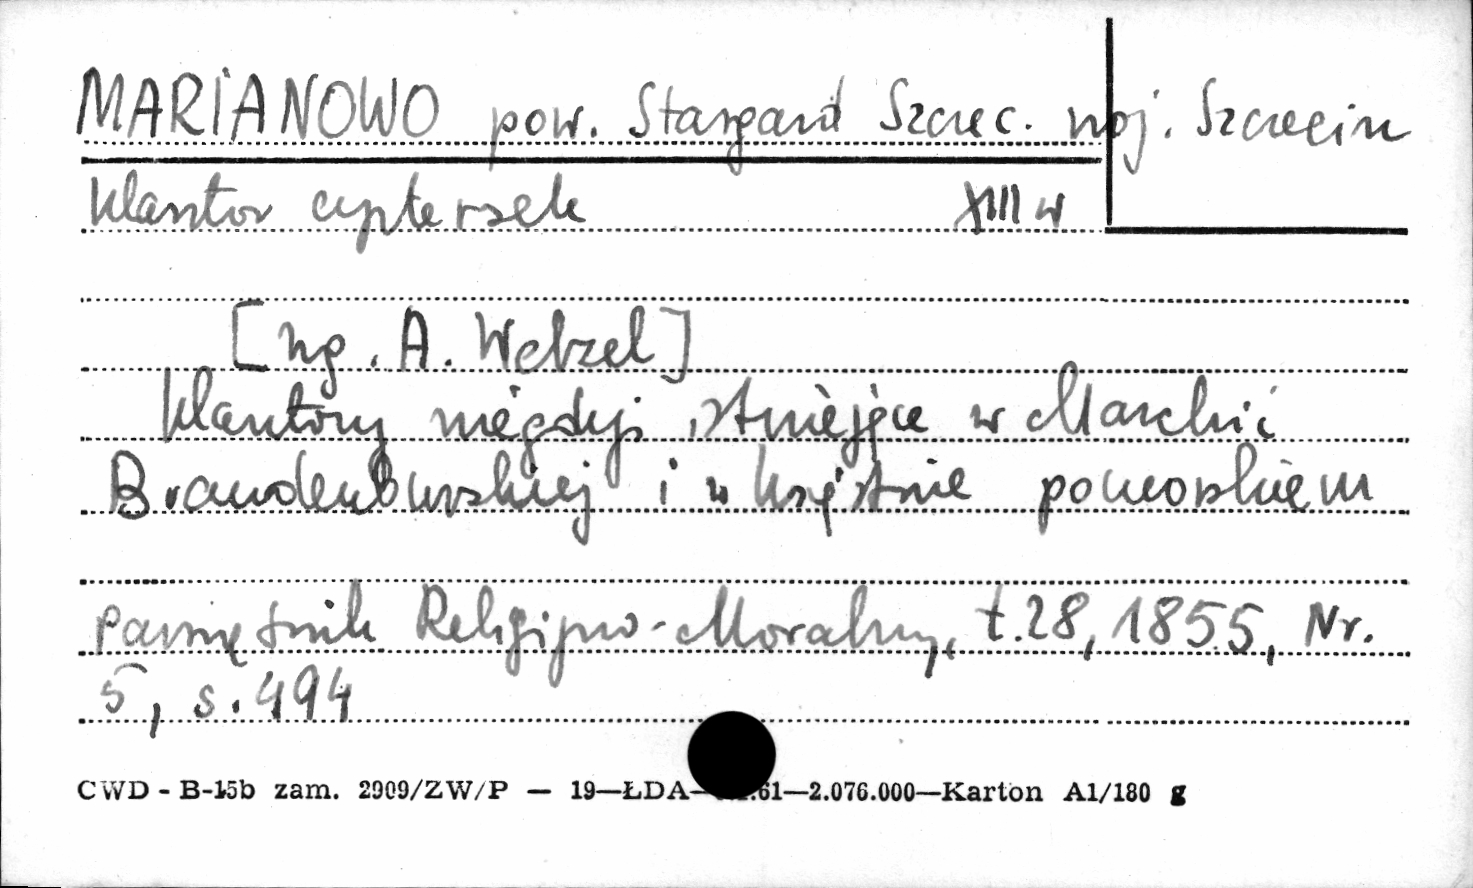 MARIANOWO pow. Stargard Szczec. woj. Szczecin
klasztor cysterek XIII w
[wg. A. Wetzel]
klasztory niegdyś istniejące w Marchii
Brandenburskiej i w księstwie pomorskiem
Pamiętnik Religijno-Moralny, t.28, 1855, Nr.
5, s. 494
CWD - B-15b zam. 2909/ZW/P — 19—ŁDA— .61—2.076.000—Karton A1/180 g